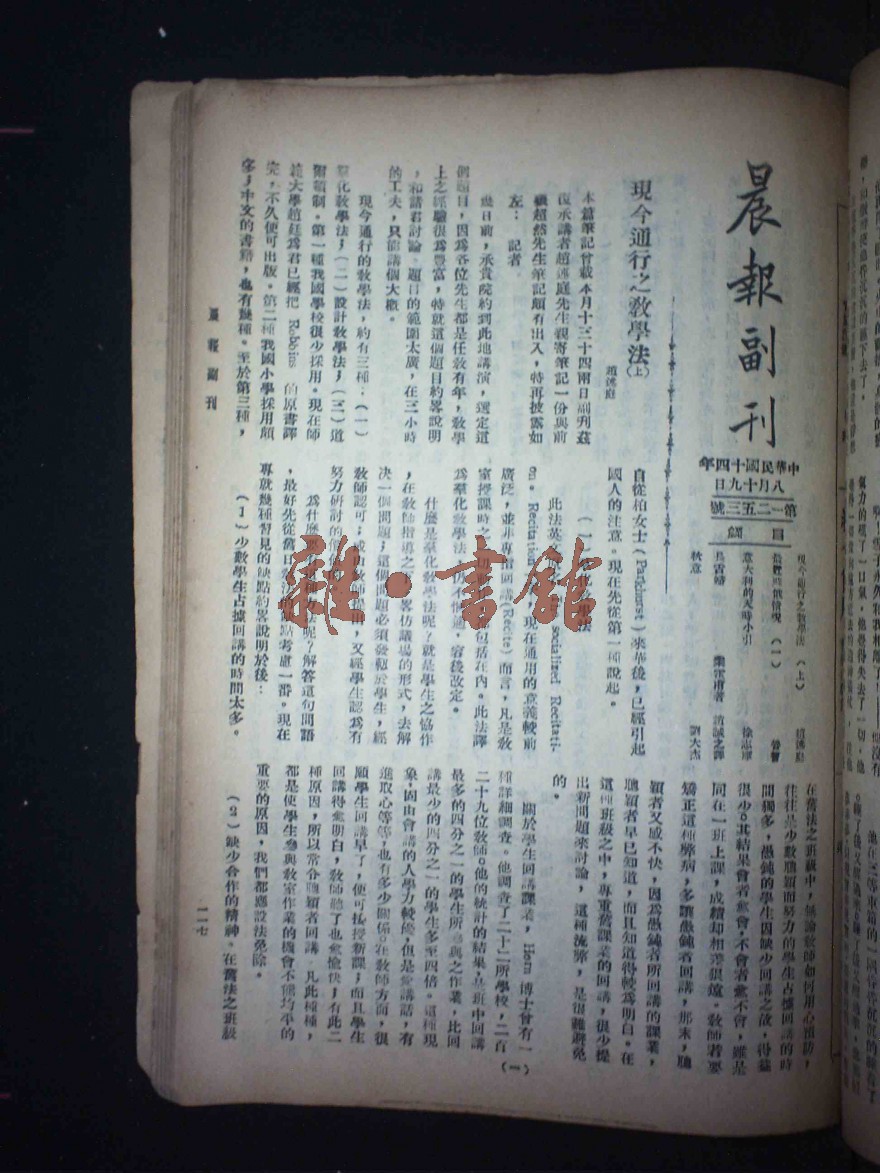 晨報副刊
中華民國十四年
八月十九日
第一二五三號
目錄
現今通行之教學法（上） 趙迺庭
意大利的天時小引 徐志摩
劉大杰
現今通行之教學法（上）
趙迺庭
本篇筆記曾載本月十三十四兩日副刋茲
復承講者趙迺庭先生親寄筆記一份與前
超然先生筆記頗有出入，特再披露如
左： 記者
幾日前，承貴院約到此地講演，選定這
個題目，因爲各位先生都是任教有年，教學
上之經驗很爲豐富，特就這個題目約畧說明
，和諸君討論。題目的範圍太廣，在三小時
的工夫，只能講個大槪。
現今通行的教學法，約有三種：（一）
羣化教學法；（二）設計教學法；（三）道
爾頓制。第一種我國學校很少採用。現在師
範大學趙廷爲君已經把 Robbins 的原書譯
完，不久便可出版。第二種我國小學採用頗
多；中文的書籍，也有幾種。至於第三種，
自從柏女士（Parkhurst）來華後，已經引起
國人的注意。現在先從第一種說起。
（一）羣化教學法
此法英文 Socialized Recitati-
on。Recitation 現在通用的意義較前
廣泛，並非專指回講（Recite）而言，凡是教
室授課時之一切 包括在內。此法譯
爲羣化教學法，仍不恰適，容後改定。
什麼是羣化教學法呢？就是學生之協作
，在教師指導之 畧仿議場的形式，去解
決一個問題；這個問題必須發動於學生，經
教師認可；或由教師提出，又經學生認爲有
努力研討的價值
爲什麼要 法呢？解答這句問語
，最好先從舊日 點考慮一番。現在
專就幾種習見的缺點約畧說明於後：
（1）少數學生占據回講的時間太多。
在舊法之班級中，無論教師如何用心預防，
往往是少數聰穎而努力的學生占據回講的時
間獨多，愚鈍的學生因缺少回講之故，得益
很少。其結果會者愈會，不會者愈不會，雖是
同在一班上課，成績却相差很遠。教師若要
矯正這種弊病，多讓愚鈍者回講，那末，聰
穎者又感不快，因爲愚鈍者所回講的課業，
聰穎者早已知道，而且知道得較爲明白。在
這種班級之中，專重舊課業的回講，很少提
出新問題來討論，這種流弊，是很難避免
的。
關於學生回講課業，Horn 博士曾有一
種詳細調查。他調查了二十二所學校，二百
二十九位教師。他的統計的結果，是班中回講
最多的四分之一的學生所參與之作業，比回
講最少的四分之一的學生多至四倍。這種現
象，固由會講的人學力較優，但是愛講話，有
進取心等等，也有多少關係。在教師方面，很
願學生回講早了，便可接授新課；而且學生
回講得愈明白，教師聽了也愈愉快；有此二
種原因，所以常令聰穎者回講。凡此種種，
都是使學生參與教室作業的機會不能均平的
重要的原因，我們都應設法免除。
（2）缺少合作的精神。在舊法之班級
（一）
晨報副刊
一一七
雜·書館